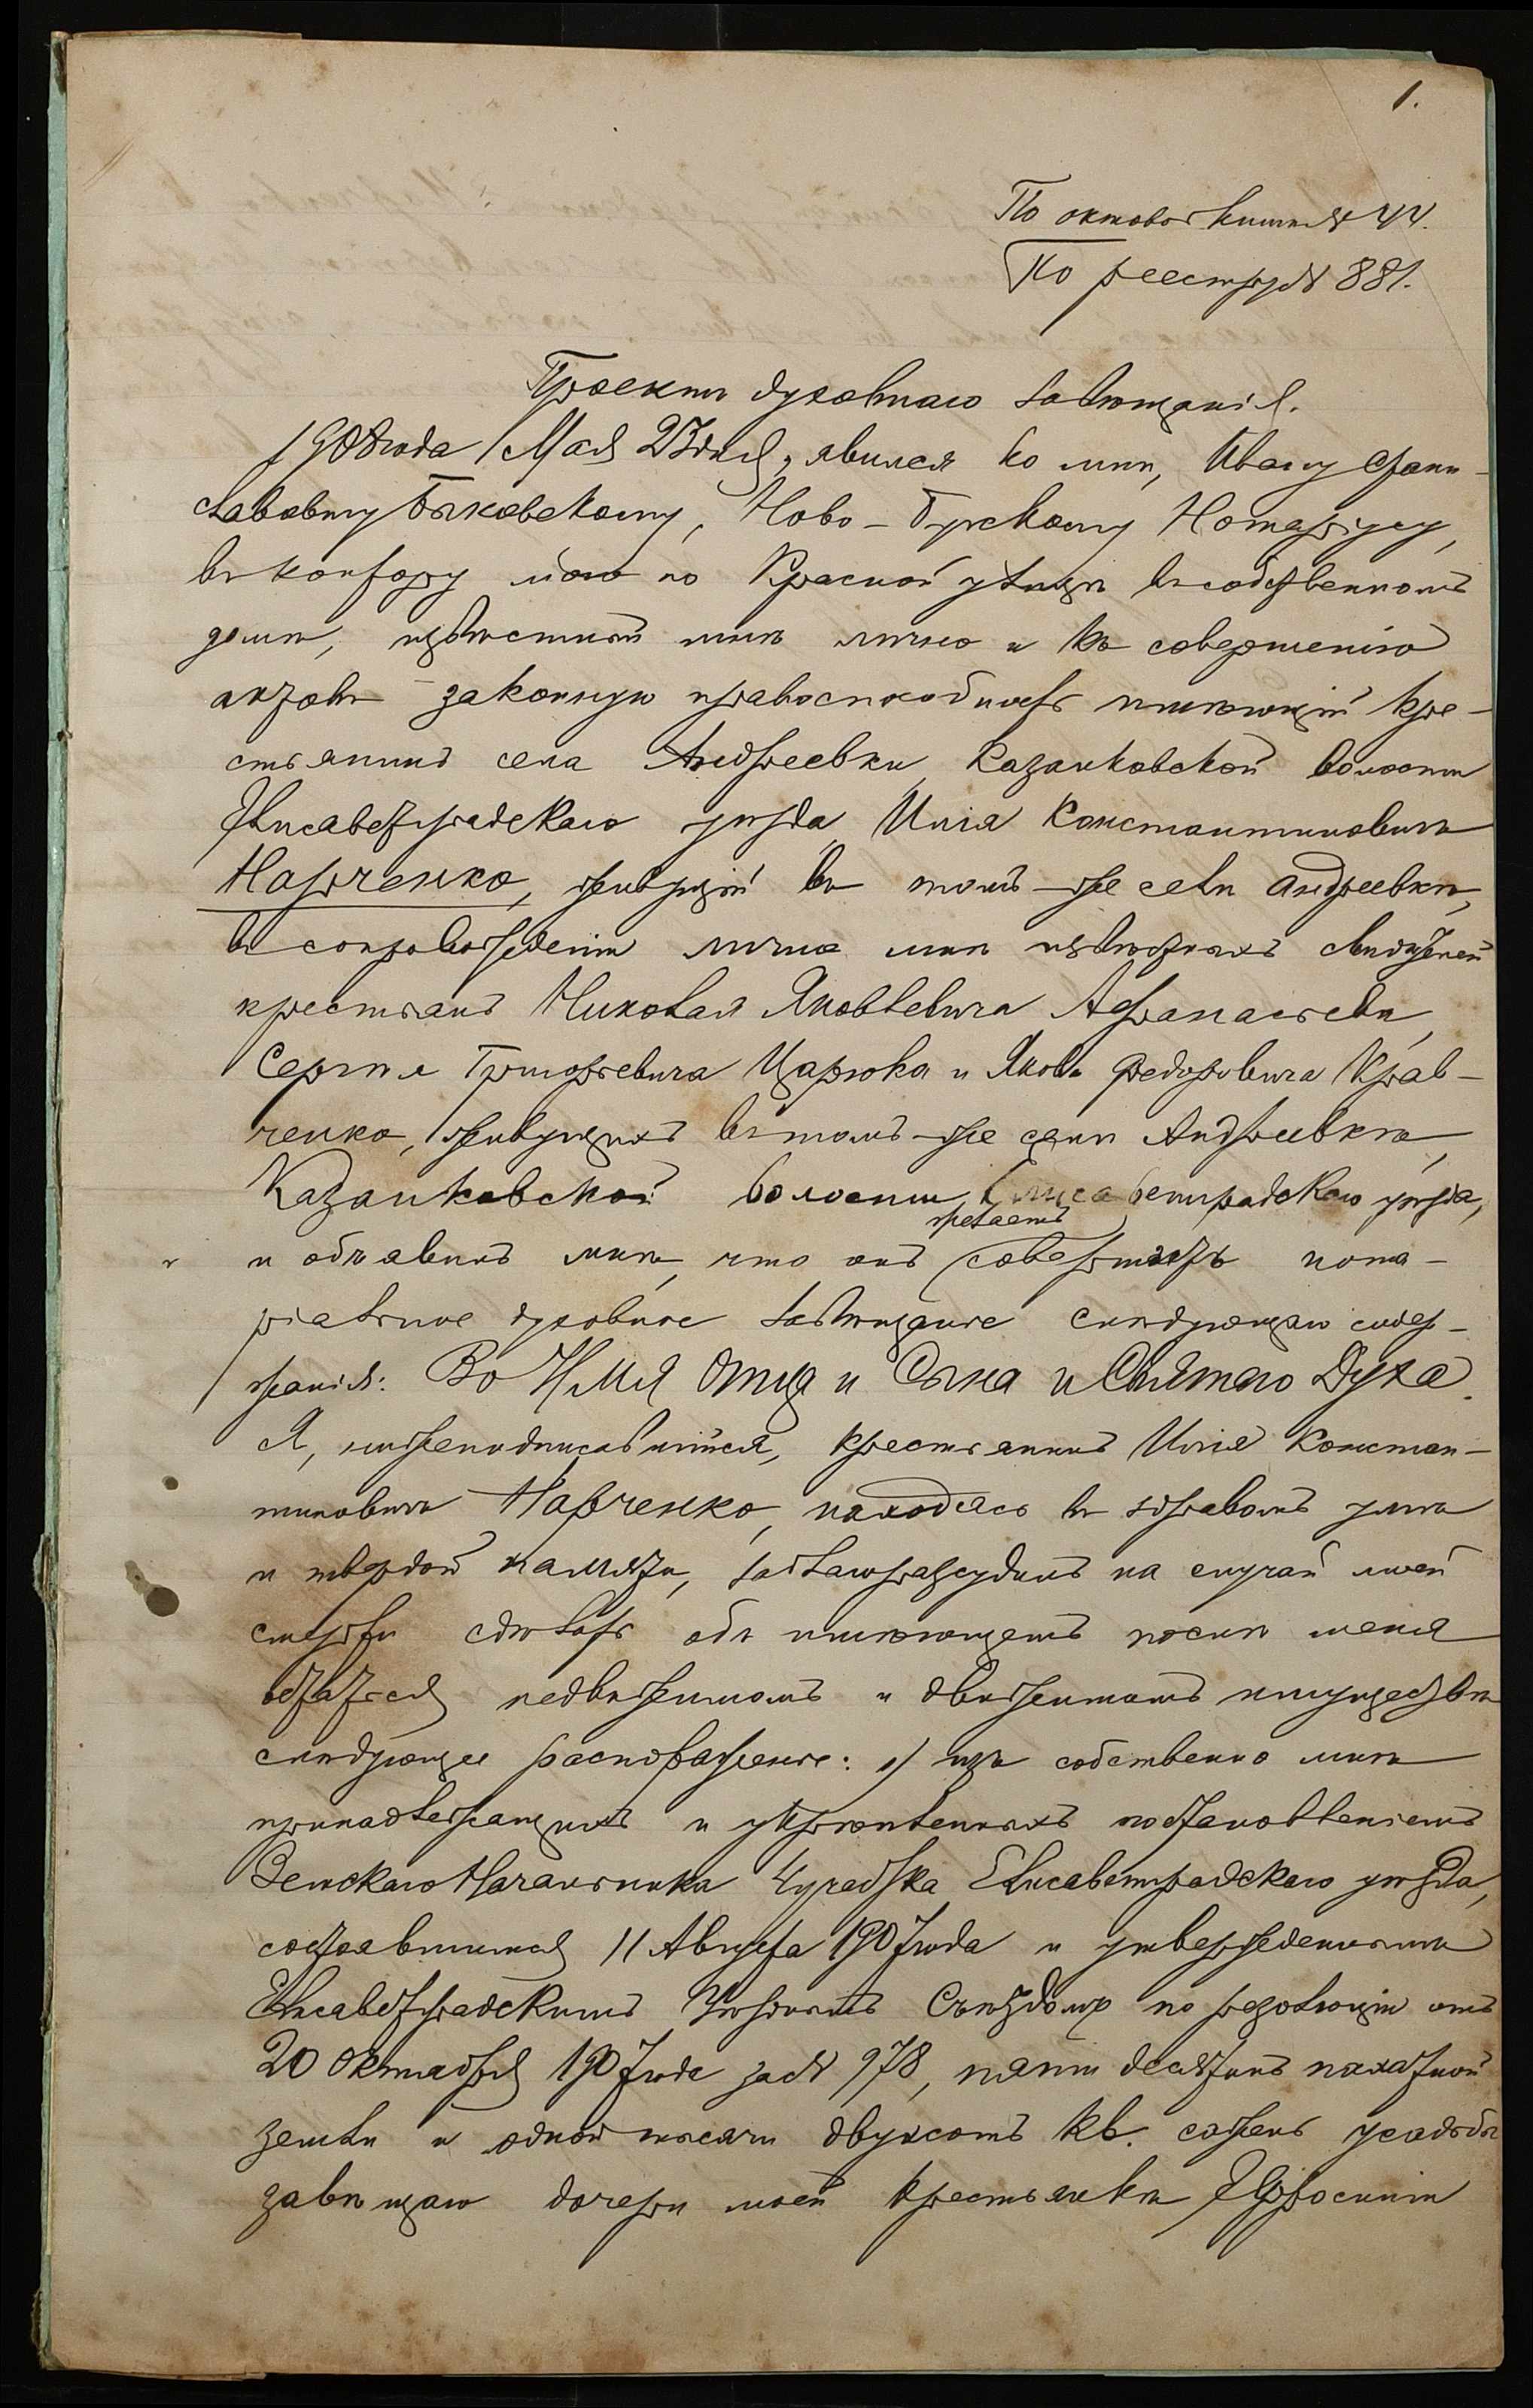 1.
По актовой книге № 44.
По реестру № 881.
Проектъ духовнаго завѣщанія.
1908 года Мая 23 дня, явился ко мнѣ, Ивану Стани-
славовичу Быковскому, Ново-Бугскому Нотаріусу,
въ контору мою по Красной улицѣ въ собственномъ
домѣ, извѣстный мнѣ лично и къ совершенію
актовъ законную правоспособность имѣющій кре-
стьянинъ села Андреевки, Казанковской волости
Елисаветградскаго уѣзда, Илія Константиновичъ
Харченко, живущій въ томъ-же селѣ Андреевкѣ,
въ сопровожденіи лично мнѣ извѣстныхъ свидѣтелей
крестьянъ Николая Яковлевича Афанасьева,
Сергѣя Григорьевича Царюка и Якова Федоровича Крав-
ченко, живущихъ въ томъ-же селѣ Андреевкѣ,
Казанковской волости, Елисаветградскаго уѣзда,
желаетъ
и объявилъ мнѣ, что онъ совершить нота-
ріальное духовное завѣщаніе слѣдующаго содер-
жанія: Во Имя Отца и Сына и Святаго Духа.
Я, нижеподписавшійся, крестьянинъ Илія Констан-
тиновичъ Харченко, находясь въ здравомъ умѣ
и твердой памяти, заблагоразсудилъ на случай моей
смерти сдѣлать объ имѣющемъ послѣ меня
остаться недвижимомъ и движимомъ имуществѣ
слѣдующее распоряженіе: 1) изъ собственно мнѣ
принадлежащихъ и укрѣпленныхъ постановленіемъ
Земскаго Начальника участка Елисаветградскаго уѣзда,
состоявшимся 11 Августа 1907 года и утвержденнымъ
Елисаветградскимъ Уѣзднымъ Съѣздомъ по резолюціи отъ
20 Октября 1907 года за № 978, пяти десятинъ пахатной
земли и одной тысячи двухсотъ кв. сажень усадьбы
завѣщаю дочери моей крестьянкѣ Ефросиніи